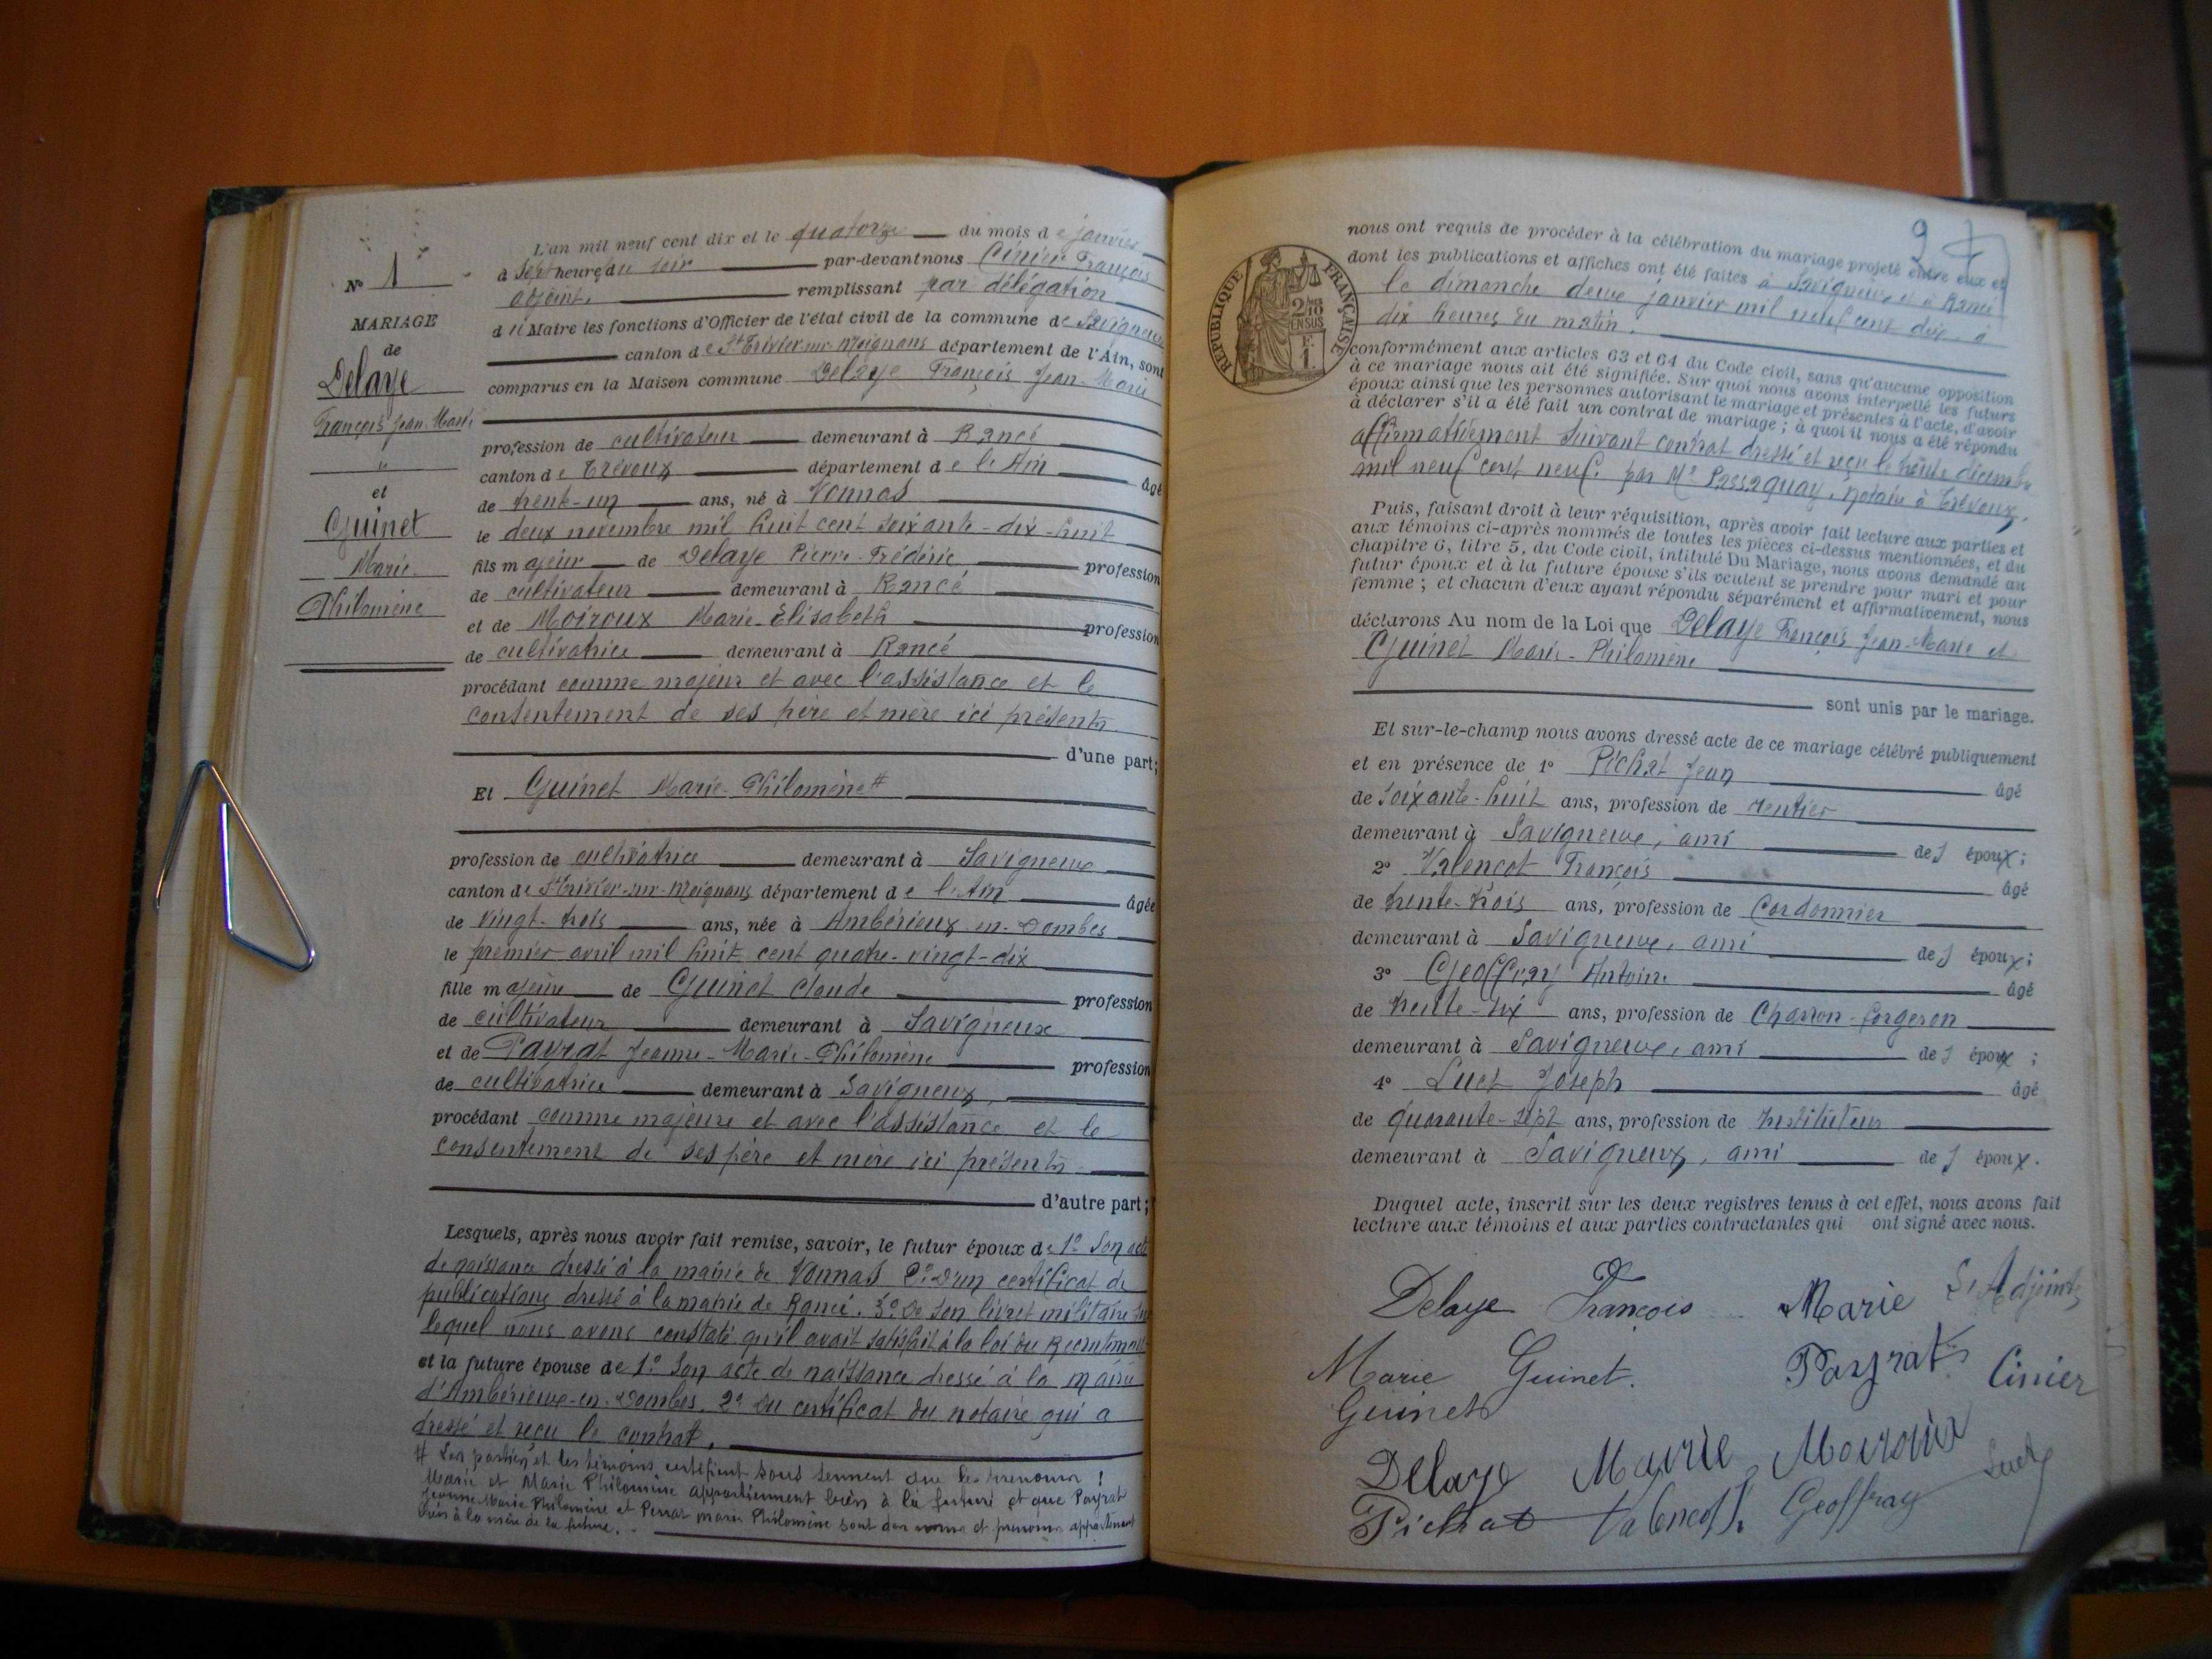 N° 1
MARIAGE
de
Delaye
François Jean-Marie
"
et
Guinet
Marie-
Philomène
L'an mil neuf cent dix et le quatorze du mois de janvier
à sept heures du soir par-devant nous Cinier François
adjoint, remplissant par délégation
du Maire les fonctions d'Officier de l'état civil de la commune de Savigneux
canton de St Trivier-sur-Moignans département de l'Ain, sont
comparus en la Maison commune Delaye François Jean-Marie
profession de cultivateur demeurant à Rancé
canton de Trévoux département de l'Ain âgé
de trente-un ans, né à Vonnas
le deux novembre mil huit cent soixante-dix-huit
fils majeur de Delaye Pierre-Frédéric, profession
de cultivateur demeurant à Rancé
et de Moiroux Marie-Elisabeth profession
de cultivatrice demeurant à Rancé
procédant comme majeur et avec l'assistance et le
consentement de ses père et mère ici présents
d'une part;
Et Guinet Marie-Philomène #
profession de cultivatrice demeurant à Savigneux
canton de St Trivier-sur-Moignans département de l'Ain âgée
de vingt-trois ans, née à Ambérieux-en-Dombes
le premier avril mil huit cent quatre-vingt-dix
fille majeure de Guinet Claude profession
de cultivateur demeurant à Savigneux
et de Payrat Jeanne-Marie-Philomène profession
de cultivatrice demeurant à Savigneux,
procédant comme majeure et avec l'assistance et le
consentement de ses père et mère ici présents
d'autre part;
Lesquels, après nous avoir fait remise, savoir, le futur époux de 1° Son acte
de naissance dressé à la mairie de Vonnas 2° D'un certificat de
publications dressé à la mairie de Rancé. 3° De son livret militaire sur
lequel nous avons constaté qu'il avait satisfait à la loi du Recrutement
et la future épouse de 1° Son acte de naissance dressé à la mairie
d'Ambérieux-en-Dombes. 2° Du certificat du notaire qui a
dressé et reçu le contrat.
# Les parties et les témoins certifient sous serment que les prénoms :
Marie et Marie Philomène appartiennent bien à la future et que Payrat
Jeanne-Marie Philomène et Perrat Marie Philomène sont des noms et prénoms appartenant
bien à la mère de la future.
9
REPUBLIQUE FRANÇAISE
2/10 EN SUS
F.
1.
nous ont requis de procéder à la célébration du mariage projeté entre eux et
dont les publications et affiches ont été faites à Savigneux et à Rancé
le dimanche deux janvier mil neuf cent dix, à
dix heures du matin.
conformément aux articles 63 et 64 du Code civil, sans qu'aucune opposition
à ce mariage nous ait été signifiée. Sur quoi nous avons interpellé les futurs
époux ainsi que les personnes autorisant le mariage et présentes à l'acte, d'avoir
à déclarer s'il a été fait un contrat de mariage; à quoi il nous a été répondu
affirmativement suivant contrat dressé et reçu le trente décembre
mil neuf cent neuf. par Me Passaquay, notaire à Trévoux.
Puis, faisant droit à leur réquisition, après avoir fait lecture aux parties et
aux témoins ci-après nommés de toutes les pièces ci-dessus mentionnées, et du
chapitre 6, titre 5, du Code civil, intitulé Du Mariage, nous avons demandé au
futur époux et à la future épouse s'ils veulent se prendre pour mari et pour
femme; et chacun d'eux ayant répondu séparément et affirmativement, nous
déclarons Au nom de la Loi que Delaye François Jean-Marie et
Guinet Marie-Philomène
sont unis par le mariage.
Et sur-le-champ nous avons dressé acte de ce mariage célébré publiquement
et en présence de 1° Pichat Jean âgé
de soixante-huit ans, profession de rentier
demeurant à Savigneux, ami des époux;
2° Valencot François âgé
de trente-trois ans, profession de Cordonnier
demeurant à Savigneux, ami des époux;
3° Geoffray Antoine âgé
de trente-six ans, profession de Charron-forgeron
demeurant à Savigneux, ami des époux;
4° Luct Joseph âgé
de quarante-sept ans, profession de Instituteur
demeurant à Savigneux, ami des époux.
Duquel acte, inscrit sur les deux registres tenus à cet effet, nous avons fait
lecture aux témoins et aux parties contractantes qui ont signé avec nous.
Delaye François Marie L'Adjoint,
Marie Guinet. Payrat Cinier
Guinet
Delaye Marie Moiroux
Pichat Valencot Geoffray Luct